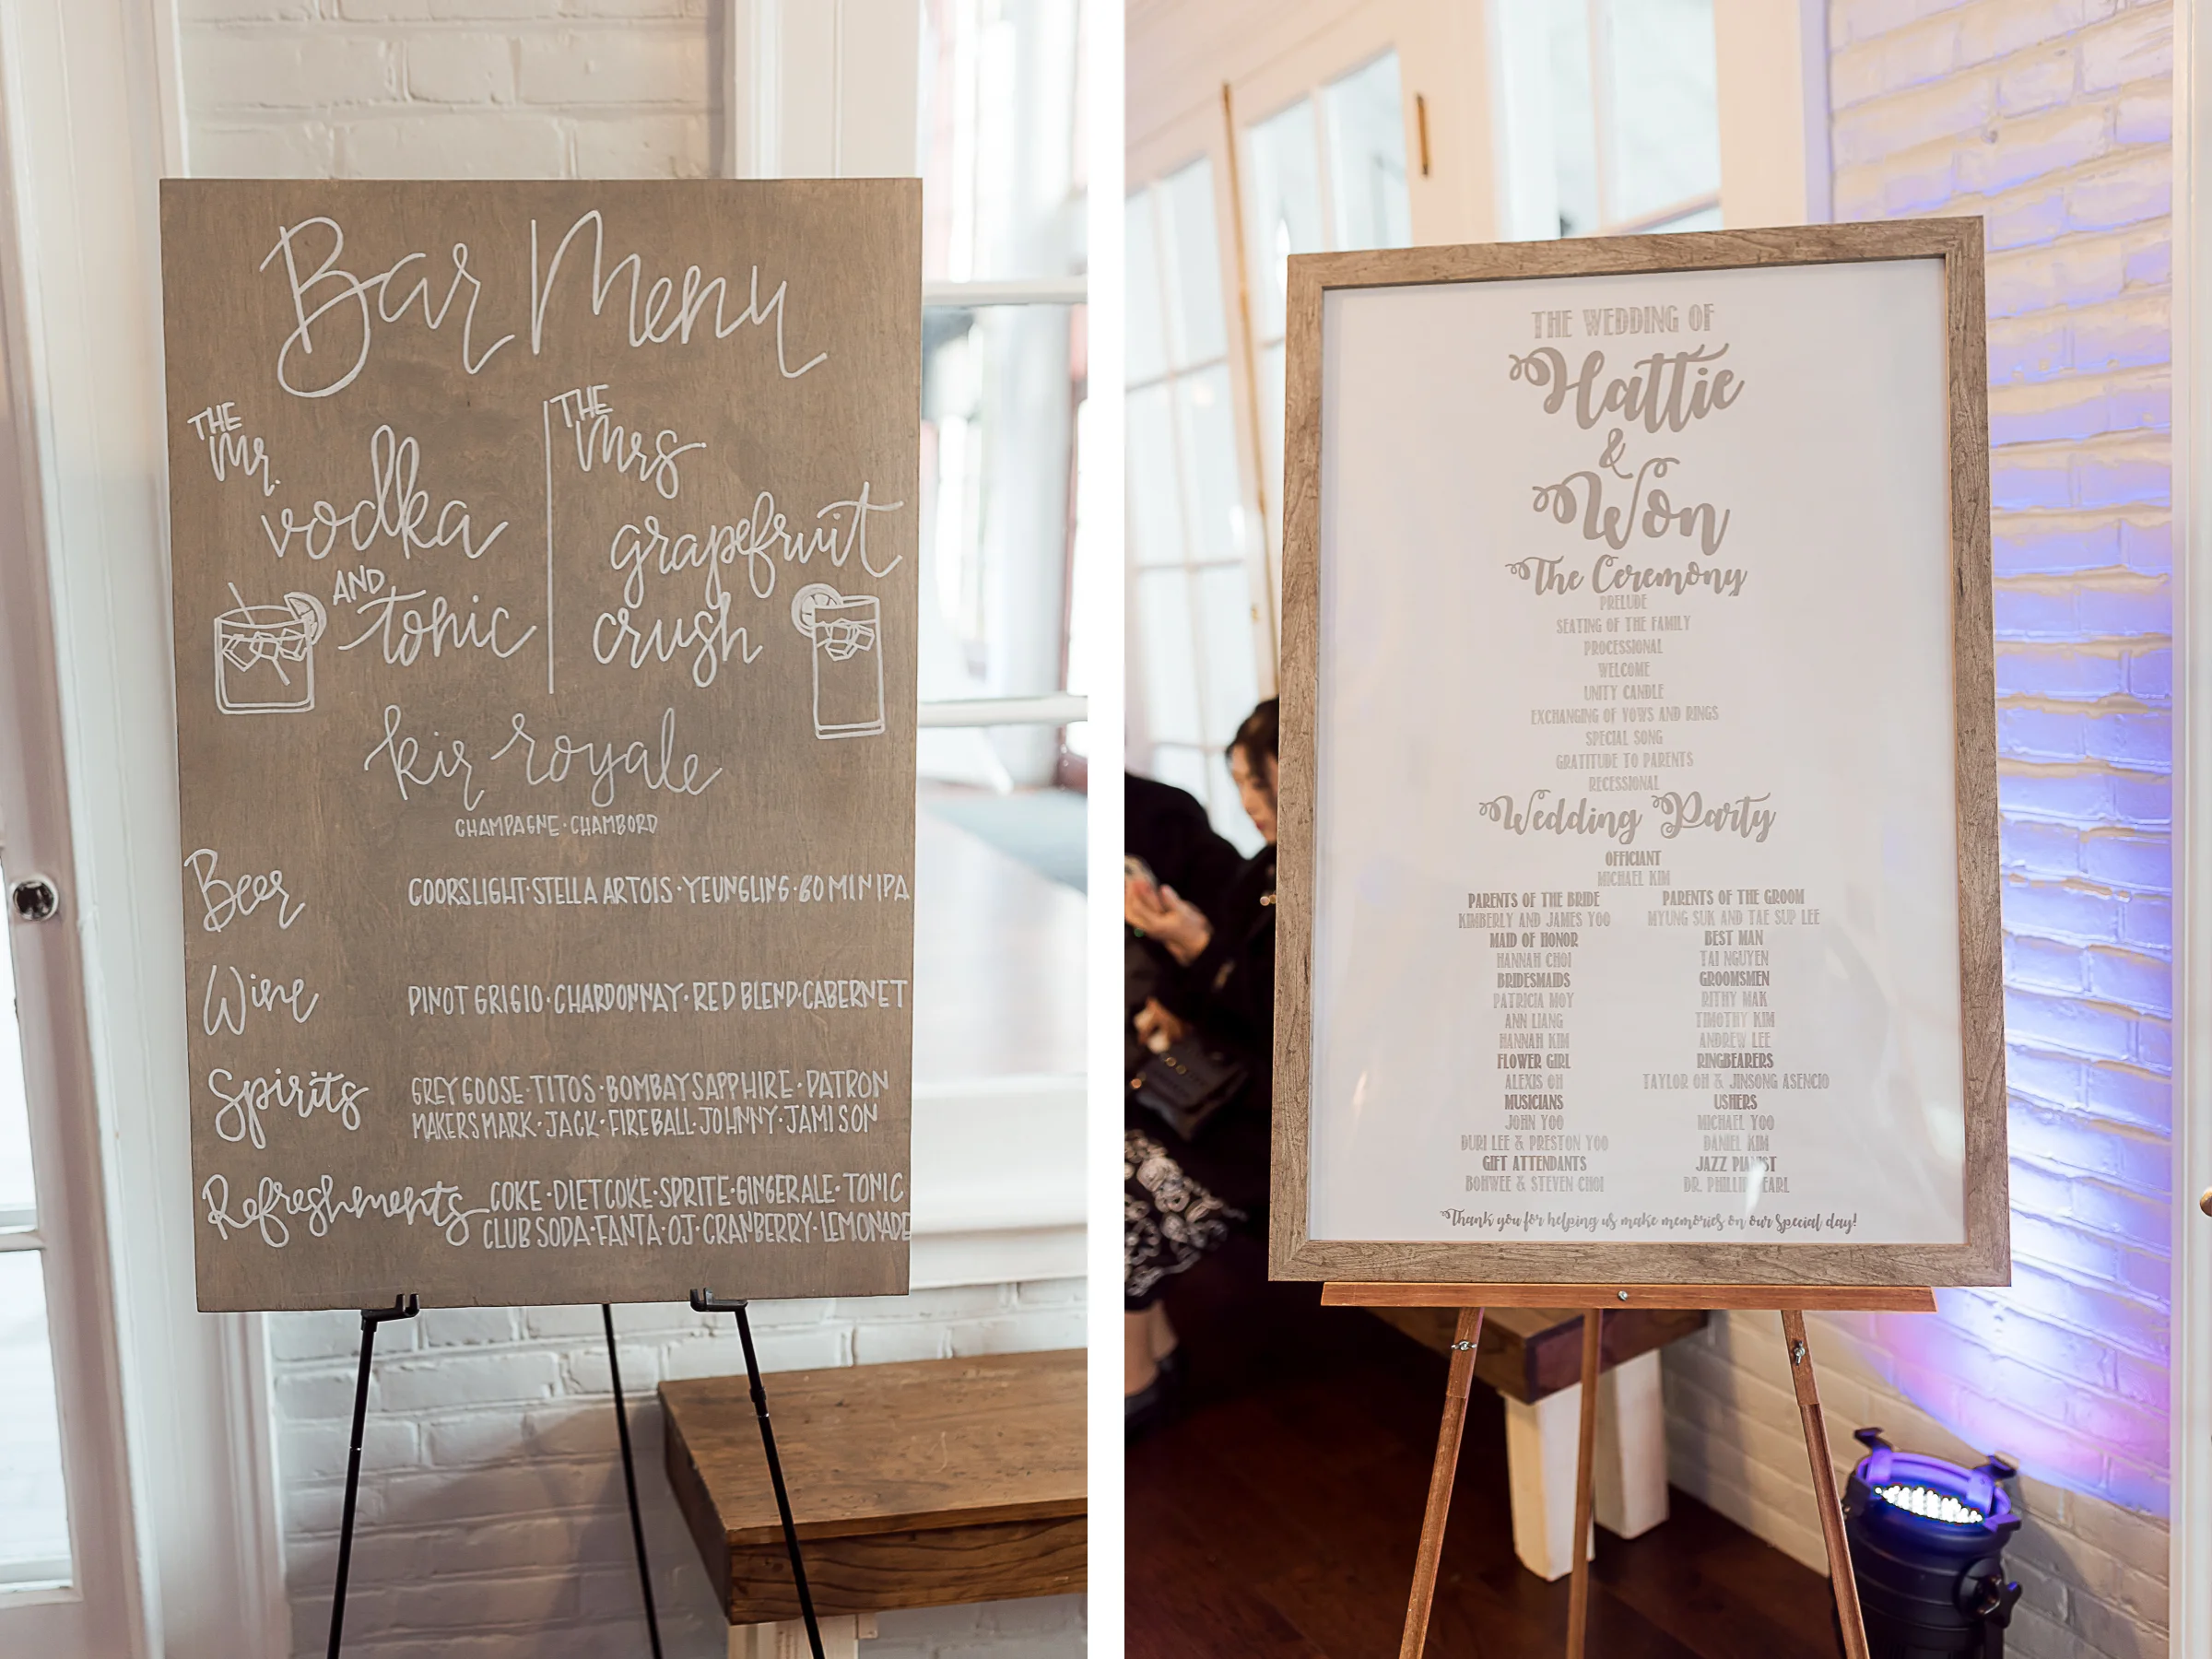 Bar Menu
THE
Mr.
vodka
AND
tonic
THE
Mrs
grapefruit
crush
kir royale
CHAMPAGNE · CHAMBORD
Beer
COORSLIGHT · STELLA ARTOIS · YEUNGLING · 60 MIN IPA
Wine
PINOT GRIGIO · CHARDONNAY · RED BLEND · CABERNET
Spirits
GREY GOOSE · TITOS · BOMBAY SAPPHIRE · PATRON
MAKERS MARK · JACK · FIREBALL · JOHNNY · JAMISON
Refreshments
COKE · DIET COKE · SPRITE · GINGERALE · TONIC
CLUB SODA · FANTA · OJ · CRANBERRY · LEMONADE
THE WEDDING OF
Hattie
&
Won
The Ceremony
PRELUDE
SEATING OF THE FAMILY
PROCESSIONAL
WELCOME
UNITY CANDLE
EXCHANGING OF VOWS AND RINGS
SPECIAL SONG
GRATITUDE TO PARENTS
RECESSIONAL
Wedding Party
OFFICIANT
MICHAEL KIM
PARENTS OF THE BRIDE
KIMBERLY AND JAMES YOO
MAID OF HONOR
HANNAH CHOI
BRIDESMAIDS
PATRICIA MOY
ANN LIANG
HANNAH KIM
FLOWER GIRL
ALEXIS OH
MUSICIANS
JOHN YOO
DURI LEE & PRESTON YOO
GIFT ATTENDANTS
BOHWEE & STEVEN CHOI
PARENTS OF THE GROOM
MYUNG SUK AND TAE SUP LEE
BEST MAN
TAI NGUYEN
GROOMSMEN
RITHY MAK
TIMOTHY KIM
ANDREW LEE
RINGBEARERS
TAYLOR OH & JINSONG ASENCIO
USHERS
MICHAEL YOO
DANIEL KIM
JAZZ PIANIST
DR. PHILLIP
Thank you for helping us make memories on our special day!